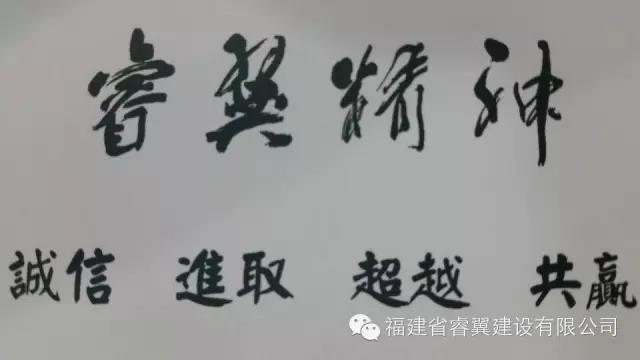 睿翼精神
誠信 進取 超越 共贏
福建省睿翼建设有限公司